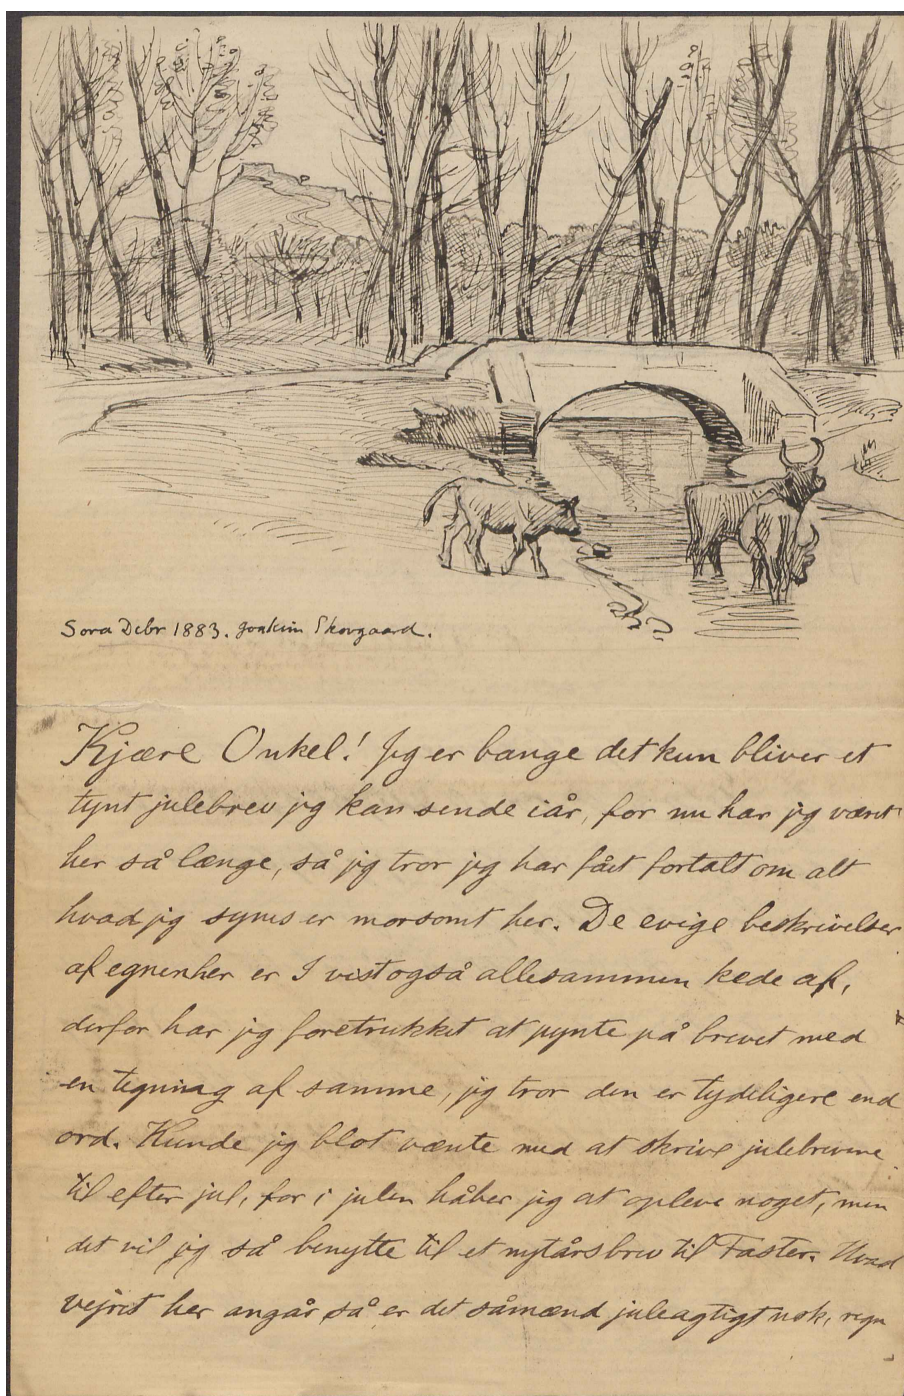 Sora Debr 1883. Joakim Skovgaard.
Kjære Onkel! Jeg er bange det kun bliver et
tynt julebrev jeg kan sende iår, for nu har jeg været
her så længe, så jeg tror jeg har fået fortalt om alt
hvad jeg synes er morsomt her. De evige beskrivelser
af egnen her er I vist også allesammen kede af,
derfor har jeg foretrukket at pynte på brevet med
en tegning af samme, jeg tror den er tydeligere end
ord. Kunde jeg blot vænte med at skrive julebrevene
til efter jul, for i julen håber jeg at opleve noget, men
det vil jeg så benytte til et nytårsbrev til Faster. Hvad
vejret her angår så er det såmænd juleagtigt nok, regn